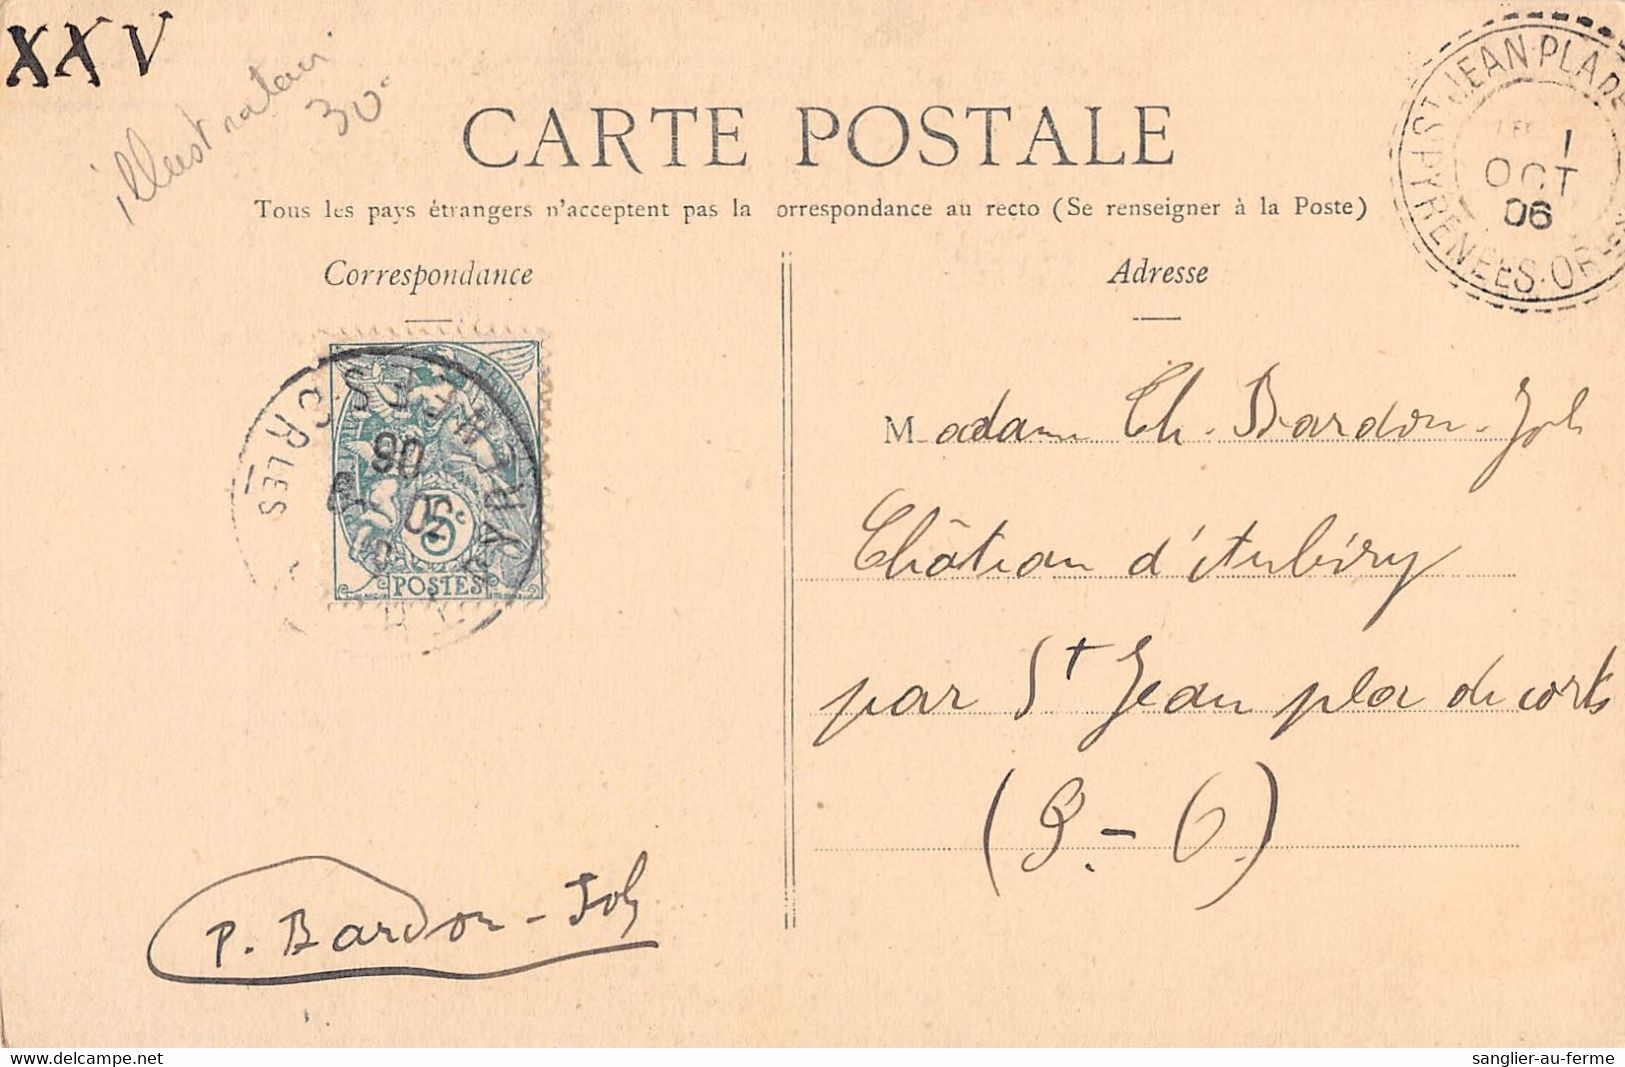 XXV
illustrateur
30
CARTE POSTALE
Tous les pays étrangers n'acceptent pas la orrespondance au recto (Se renseigner à la Poste)
Correspondance
Adresse
ST JEAN-PLA DE
1
OCT
06
PYRENEES-OR
PYRENEES OR
06
POSTES
5c
Madame Ch. Bardou-Job
Château d'Aubiry
par St Jean pla de corts
(P.-O.)
P. Bardou-Job
www.delcampe.net
sanglier-au-ferme